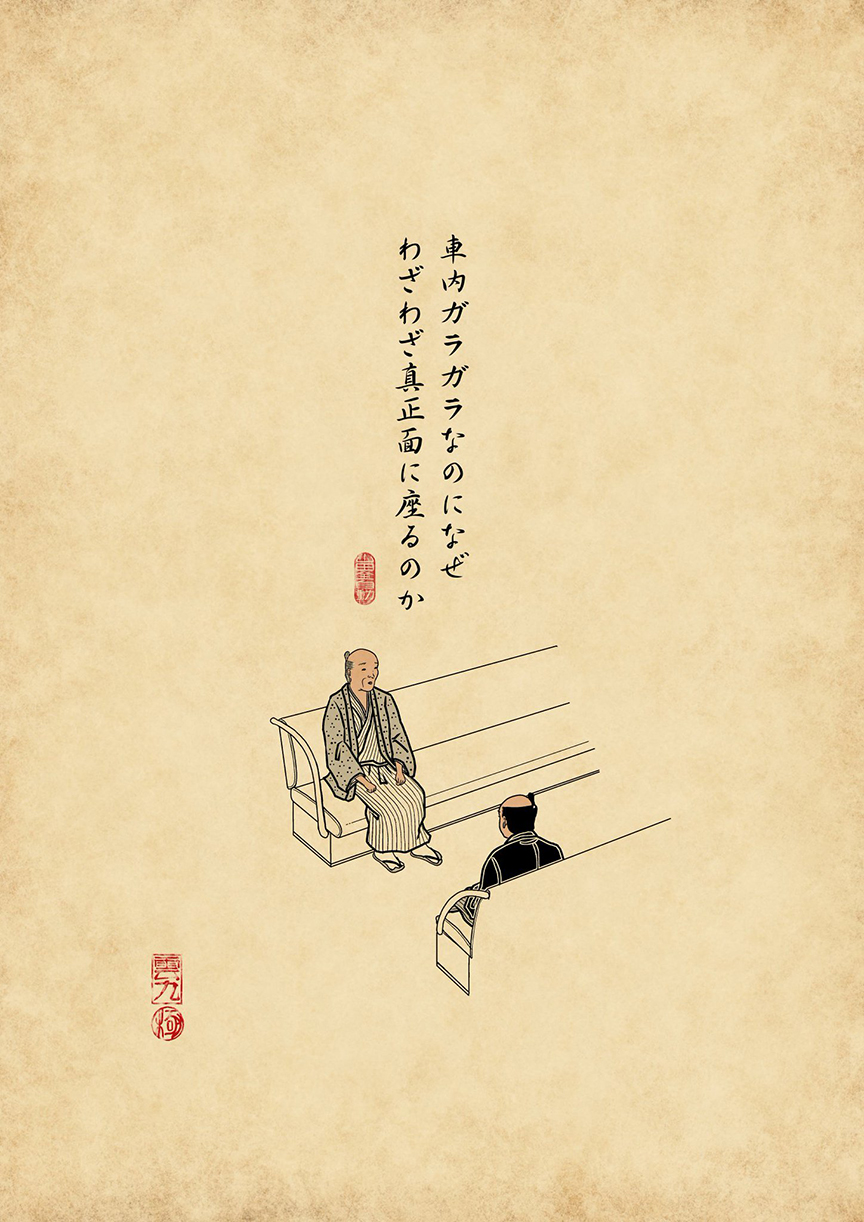 車内ガラガラなのになぜ
わざわざ真正面に座るのか